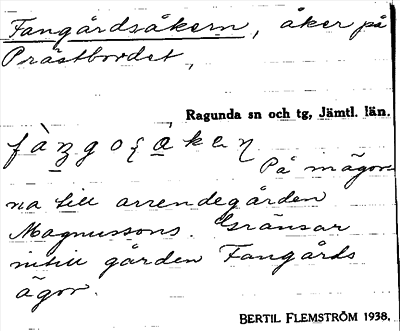 Fangårdsåkern, åker på
Prästbordet,
Ragunda sn och tg, Jämtl. län.
På inägor-
na till arrendegården
Magnussons. Gränsar
intill gården Fangårds
ägor.
BERTIL FLEMSTRÖM 1938.